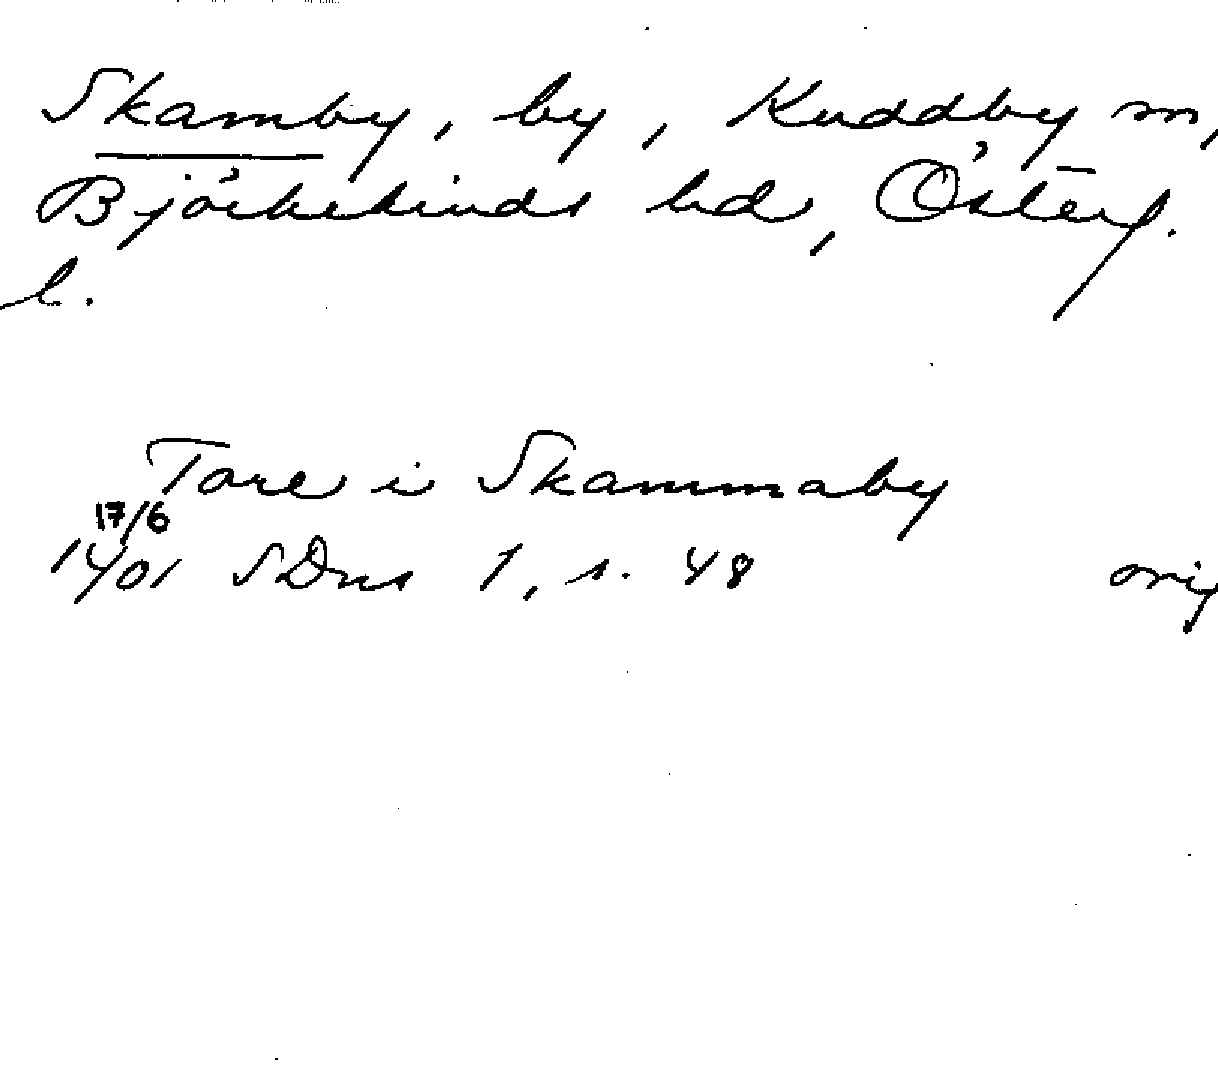 Skamby, by, Kuddby sn,
Björkekinds hd, Österg.
l.
Tore i Skammaby
17/6
1401 SDns 1, s. 48 orig